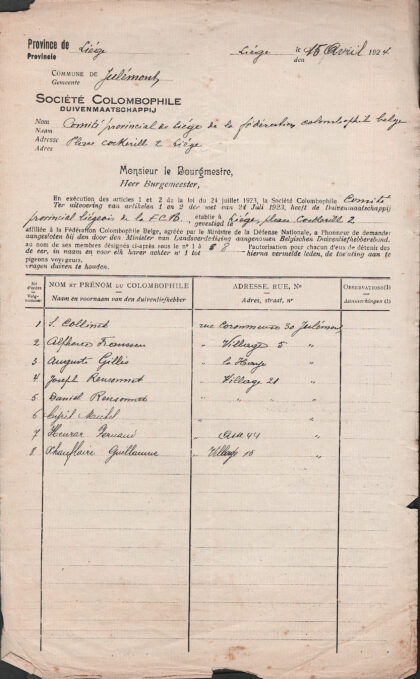 Province de Liége Liége le 15 Avril 1924
Provincie den
COMMUNE DE Julémont
Gemeente
SOCIÉTÉ COLOMBOPHILE
DUIVENMAATSCHAPPIJ
Nom Comité provincial de Liége de la fédération colombophile belge
Naam
Adresse Place cockerill 2 Liége
Adres
Monsieur le Bourgmestre,
Heer Burgemeester,
En exécution des articles 1 et 2 de la loi du 24 juillet 1923, la Société Colombophile Comité
Ter uitvoering van artikelen 1 en 2 der wet van 24 Juli 1923, heeft de Duivenmaatschappij
provincial liégeois de la F.C.B. établie à Liége, place Cockerill 2
gevestigd te
affiliée à la Fédération Colombophile Belge, agréée par le Ministre de la Défense Nationale, a l'honneur de demander
aangesloten bij den door den Minister van Landsverdediging aangenomen Belgischen Duivenliefhebbersbond,
au nom de ses membres désignés ci-après sous le n° 1 à 8 l'autorisation pour chacun d'eux de détenir des
de eer, in naam en voor elk harer achter n° 1 tot hierna vermelde leden, de toelating aan te
pigeons voyageurs.
vragen duiven te houden.
N° d'ordre NOM ET PRÉNOM DU COLOMBOPHILE ADRESSE, RUE, N° OBSERVATIONS (1)
Volgnummer Naam en voornaam van den duivenliefhebber Adres, straat, n° Aanmerkingen (1)
1 S. Collinet rue 30 Julémont
2 Alphonse Franssen " Village 5 "
3 Auguste Gillis " la Heuze "
4 Joseph Rensonnet " Village 21 "
5 Daniel Rensonnet " " "
6 "
7 Fernand " 44 "
8 Guillaume " Village 10 "